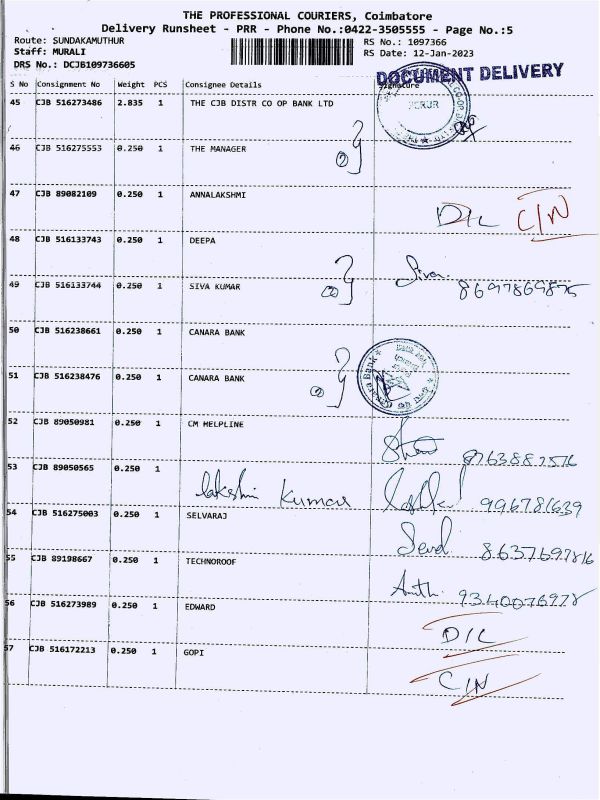 THE PROFESSIONAL COURIERS, Coimbatore
Delivery Runsheet - PRR - Phone No.:0422-3505555 - Page No.:5
Route: SUNDAKAMUTHUR
RS No.: 1097366
Staff: MURALI
RS Date: 12-Jan-2023
DRS No.: DCJB109736605
DOCUMENT DELIVERY
S No Consignment No Weight PCS Consignee Details Signature
45 CJB 516273486 2.835 1 THE CJB DISTR CO OP BANK LTD
46 CJB 516275553 0.250 1 THE MANAGER
47 CJB 89082109 0.250 1 ANNALAKSHMI D/L C/N
48 CJB 516133743 0.250 1 DEEPA
49 CJB 516133744 0.250 1 SIVA KUMAR Siva. 8697869875
50 CJB 516238661 0.250 1 CANARA BANK
51 CJB 516238476 0.250 1 CANARA BANK
Canara Bank
52 CJB 89050981 0.250 1 CM HELPLINE
53 CJB 89050565 0.250 1 lakshmi kumar 996781639
54 CJB 516275003 0.250 1 SELVARAJ 8637697816
55 CJB 89198667 0.250 1 TECHNOROOF 9340076978
56 CJB 516273989 0.250 1 EDWARD D/L
57 CJB 516172213 0.250 1 GOPI C/N